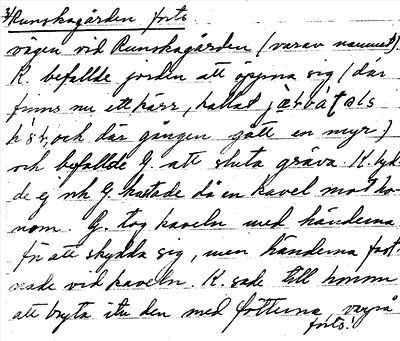 3/ Runskagården forts
vägen vid Runskagården (varav namnet).
K. befallde jorden att öppna sig (där
finns nu ett kärr, kallat
och där gången gått en myr)
och befallde G. att sluta gräva. K. lyd-
de ej och G. kastade då en kavel mot ho-
nom. G. tog kaveln med händerna
för att skydda sig, men händerna fast-
nade vid kaveln. K. sade till honom
att bryta itu den med fötterna, varpå
forts!